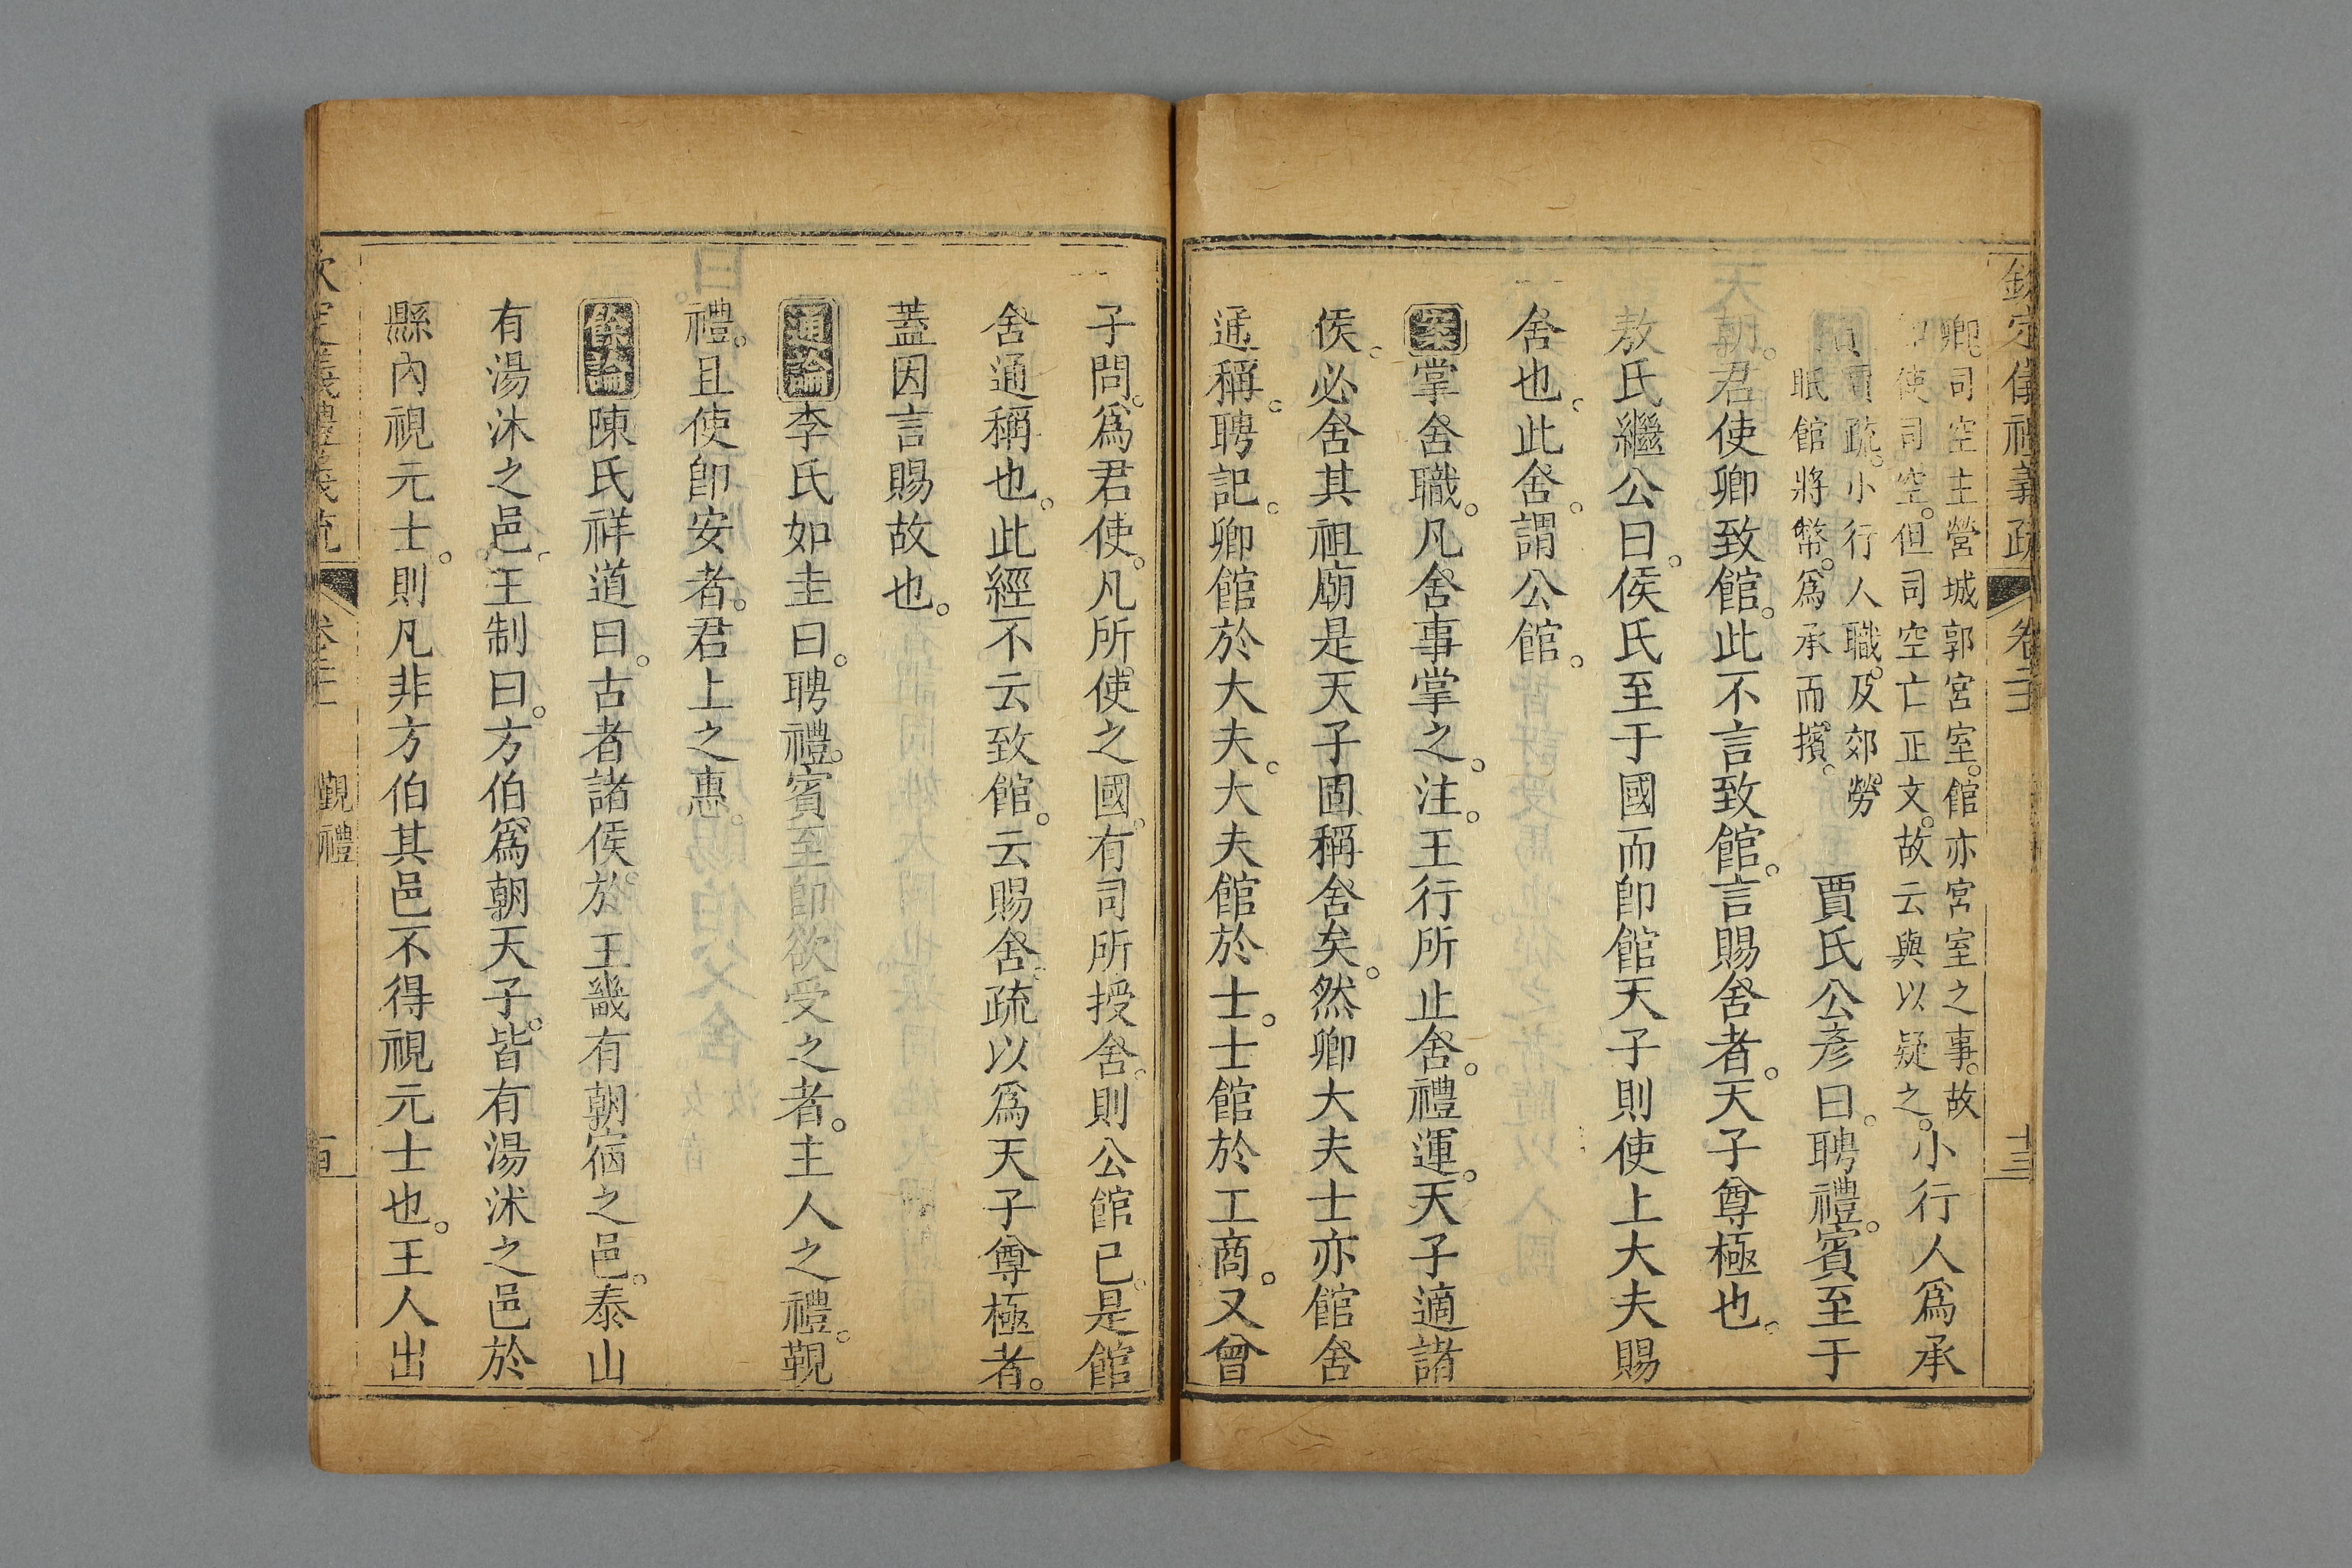 欽定儀禮義疏 卷二 十三
卿。司空主營城郭宮室。館亦宮室之事。故
使司空。但司空亡正文。故云與以疑之。小行人爲承
賈疏。小行人職。及郊勞
眂館將幣。爲承而擯。 賈氏公彥曰。聘禮。賓至于
朝。君使卿致館。此不言致館。言賜舍者。天子尊極也。
敖氏繼公曰。侯氏至于國而卽館天子則使上大夫賜
舍也。此舍。謂公館。
案掌舍職。凡舍事掌之。注。王行所止舍。禮運。天子適諸
侯。必舍其祖廟是天子固稱舍矣。然卿大夫士亦館舍
通稱。聘記。卿館於大夫。大夫館於士。士館於工商。又曾
子問。爲君使。凡所使之國。有司所授舍。則公館已。是館
舍通稱也。此經不云致館。云賜舍。疏以爲天子尊極者。
蓋因言賜故也。
通論李氏如圭曰。聘禮。賓至卽欲受之者。主人之禮。覲
禮。且使卽安者。君上之惠。
餘論陳氏祥道曰。古者諸侯。於王畿有朝宿之邑。泰山
有湯沐之邑。王制曰。方伯爲朝天子。皆有湯沐之邑於
縣內視元士。則凡非方伯其邑不得視元士也。王人出
欽定儀禮義疏 覲禮